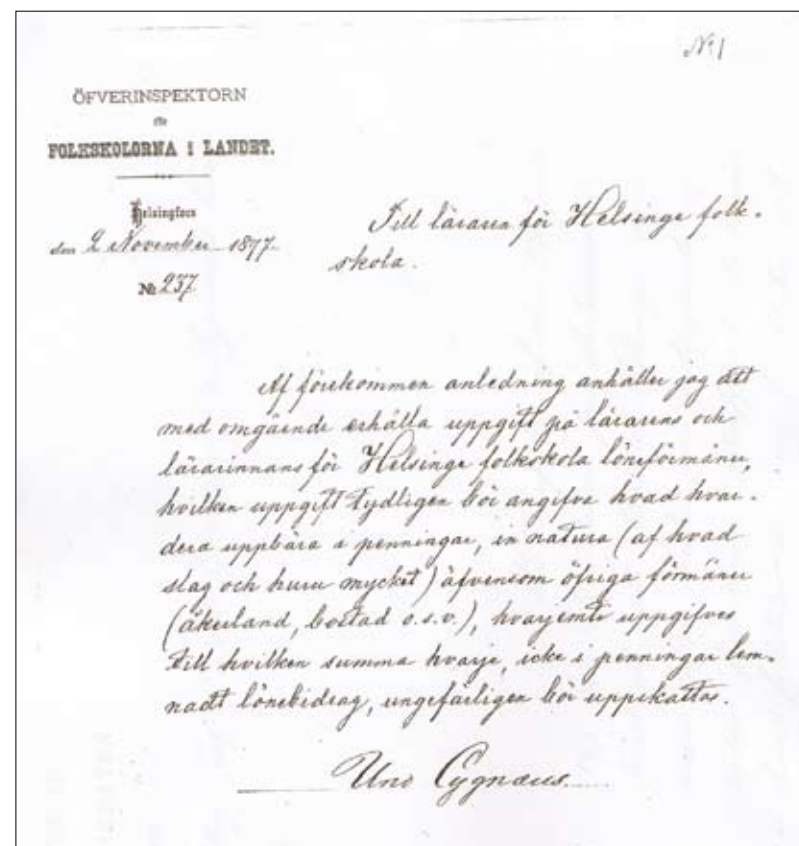 No 1
ÖFVERINSPEKTORN
för
FOLKSKOLORNA I LANDET.
Helsingfors
den 2 November 1877.
No 237
Till läraren för Helsinge folk-
skola.
Af förekommen anledning anhåller jag att
med omgående erhålla uppgift på lärarens och
lärarinnans för Helsinge folkskola löneförmåner,
hvilken uppgift tydligen bör angifva hvad hvar-
dera uppbära i penningar, in natura (af hvad
slag och huru mycket) äfvensom öfriga förmåner
(åkerland, bostad o.s.v.), hvarjemte uppgifves
till hvilken summa hvarje, icke i penningar lem-
nadt lönebidrag, ungefärligen bör uppskattas.
Uno Cygnæus.